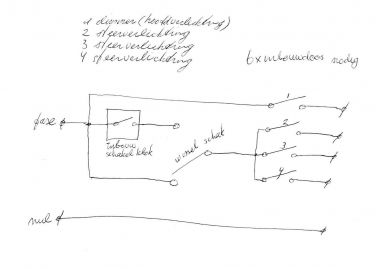 1 dimmer (hoofdverlichting)
2 sfeerverlichting
3 sfeerverlichting
4 sfeerverlichting
6x inbouwdoos nodig
1
fase
inbouw
schakel klok
wissel schak
2
3
4
nul